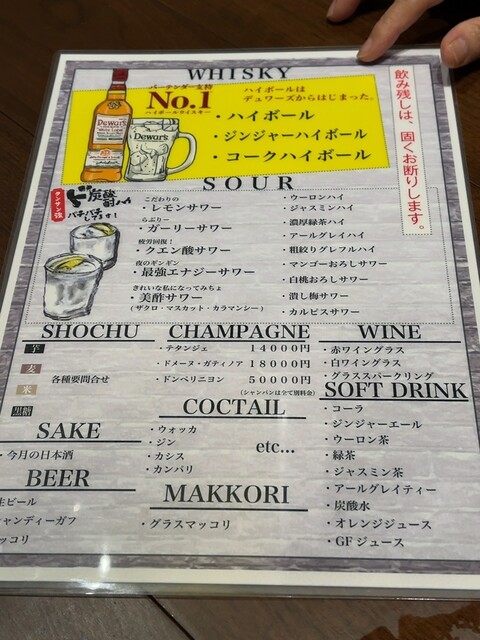 WHISKY
飲み残しは、固くお断りします。
バーテンダー支持
No.1
ハイボールウイスキー
ハイボールは
デュワーズからはじまった。
・ハイボール
・ジンジャーハイボール
・コークハイボール
Dewar's
Dewar's
SOUR
タンサン強
ド炭酸
バチバチしてます!
こだわりの
・レモンサワー
らぶりー
・ガーリーサワー
疲労回復!
・クエン酸サワー
夜のギンギン
・最強エナジーサワー
きれいな私になってみちょ
・美酢サワー
(ザクロ・マスカット・カラマンシー)
・ウーロンハイ
・ジャスミンハイ
・濃厚緑茶ハイ
・アールグレイハイ
・粗絞りグレフルハイ
・マンゴーおろしサワー
・白桃おろしサワー
・潰し梅サワー
・カルピスサワー
SHOCHU
芋
麦
米
黒糖
各種要問合せ
CHAMPAGNE
・テタンジェ 14000円
・ドメーヌ・ガティノア 18000円
・ドンペリニヨン 50000円
(シャンパンは全て別料金)
WINE
・赤ワイングラス
・白ワイングラス
・グラススパークリング
SOFT DRINK
・コーラ
・ジンジャーエール
・ウーロン茶
・緑茶
・ジャスミン茶
・アールグレイティー
・炭酸水
・オレンジジュース
・GFジュース
COCTAIL
・ウォッカ
・ジン
・カシス
・カンパリ
etc...
SAKE
・今月の日本酒
BEER
生ビール
ャンディーガフ
ッコリ
MAKKORI
・グラスマッコリ